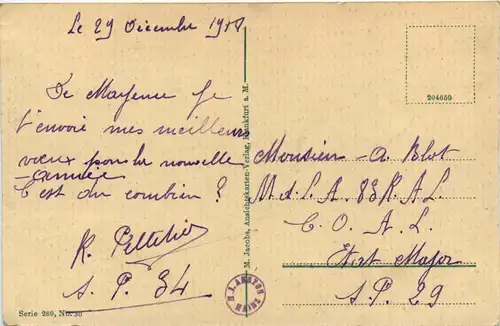 Le 29 Décembre 1918
De Mayence je
t'envoie mes meilleurs
vœux pour la nouvelle
année
C'est du combien ?
R. Pelletier
S. P. 34
Serie 280, No. 30
M. Jacobs, Ansichtskarten-Verlag, Frankfurt a. M.
204659
Monsieur A. Blot
M.d.L. A. 83 R.A.L.
C. O. A. L.
Etat Major
S.P. 29